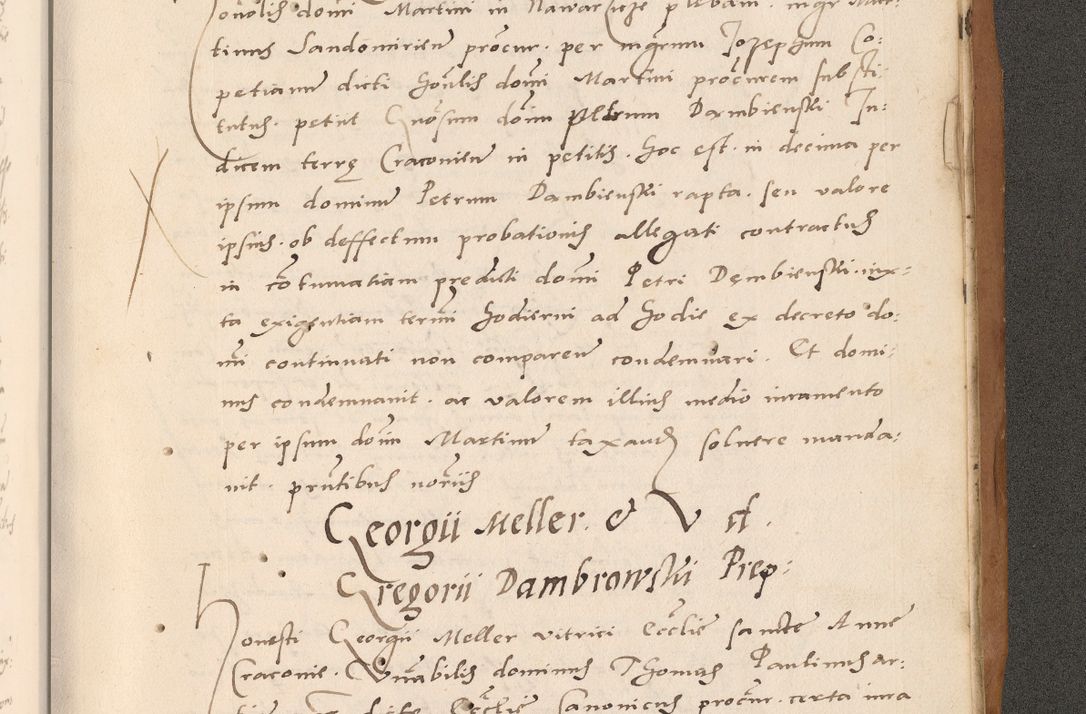 onolis domi Martini in Nawar
tinus Sandomirien procur. per mgrum Josephum Co:
petianum dicti honlis domi Martini procurem substi:
tutus. petut Gnosum domi Petrum Dambienski Ju:
dicem terrę Cracovien in petitis. hoc est. in decima per
ipsum dominum Petrum Dambienski rapta. seu valore
ipsius. ob deffectum probationis allegati contractus
in cotumatiam predicti domi Petri Dembienski. iux:
ta exigentiam termi hodierni ad hodie ex decreto do:
mi continuati non comparen condemnari. Et domi:
nus condemnavit. ac valorem illius medio iuramento
per ipsum domi Martinum taxand solvere manda:
vit. pntibus noriis
Georgii Meller. & V et.
Gregorii Dambrowski Prep:
Honesti Georgii Meller vitrici Ecclie sancte Anne
Cracovie. Vnabilis dominus Thomas Paulinus ar:
Ecclie Canonicus procur. certa iura